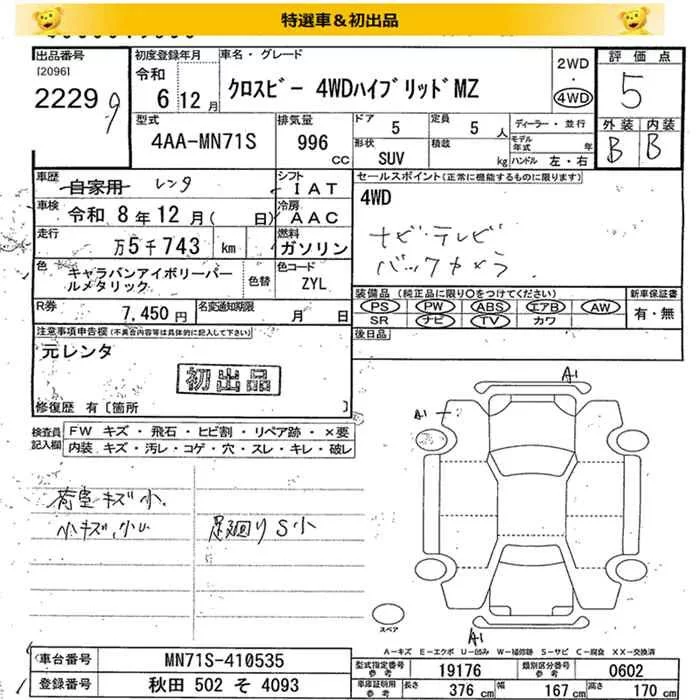 特選車＆初出品
出品番号
[2096]
2229 9
初度登録年月
令和
6年 12月
車名・グレード
クロスビー 4WDハイブリッドMZ
2WD
・
4WD
評価点
5
外装 内装
B B
型式
4AA-MN71S
排気量
996
CC
ドア 5
定員 5 人
形状 SUV
積載 kg
ディーラー・並行
モデル年式 年
ハンドル 左・右
車歴
自家用 レンタ
シフト
IAT
車検
令和 8年 12月( 日)
冷房
AAC
走行
万5千743 km
燃料
ガソリン
色
キャラバンアイボリーパー
ルメタリック
色替
色コード
ZYL
R券
7,450円
名変通知期限
月 日
セールスポイント(正常に機能するものに限ります)
4WD
ナビ・テレビ
バックカメラ
装備品 (純正品に限り○をつけてください)
PS PW ABS エアB AW
SR ナビ TV カワ
新車保証書
有・無
後日品
注意事項申告欄(不具合内容等は具体的に記入して下さい)
元レンタ
初出品
修復歴 有〔箇所 〕
検査員
記入欄
FW キズ・飛石・ヒビ割・リペア跡・×要
内装 キズ・汚レ・コゲ・穴・スレ・キレ・破レ
荷室キズ小.
小キズ、小U
足廻りS小
A1
A1
A1
スペア
A−キズ E−エクボ U−凹み W−補修跡 S−サビ C−腐食 XX−交換済
車台番号
MN71S-410535
登録番号
秋田 502 そ 4093
型式指定番号
参考
19176
類別区分番号
参考
0602
車庫証明用
参考
長さ 376 cm
幅 167 cm
高さ 170 cm